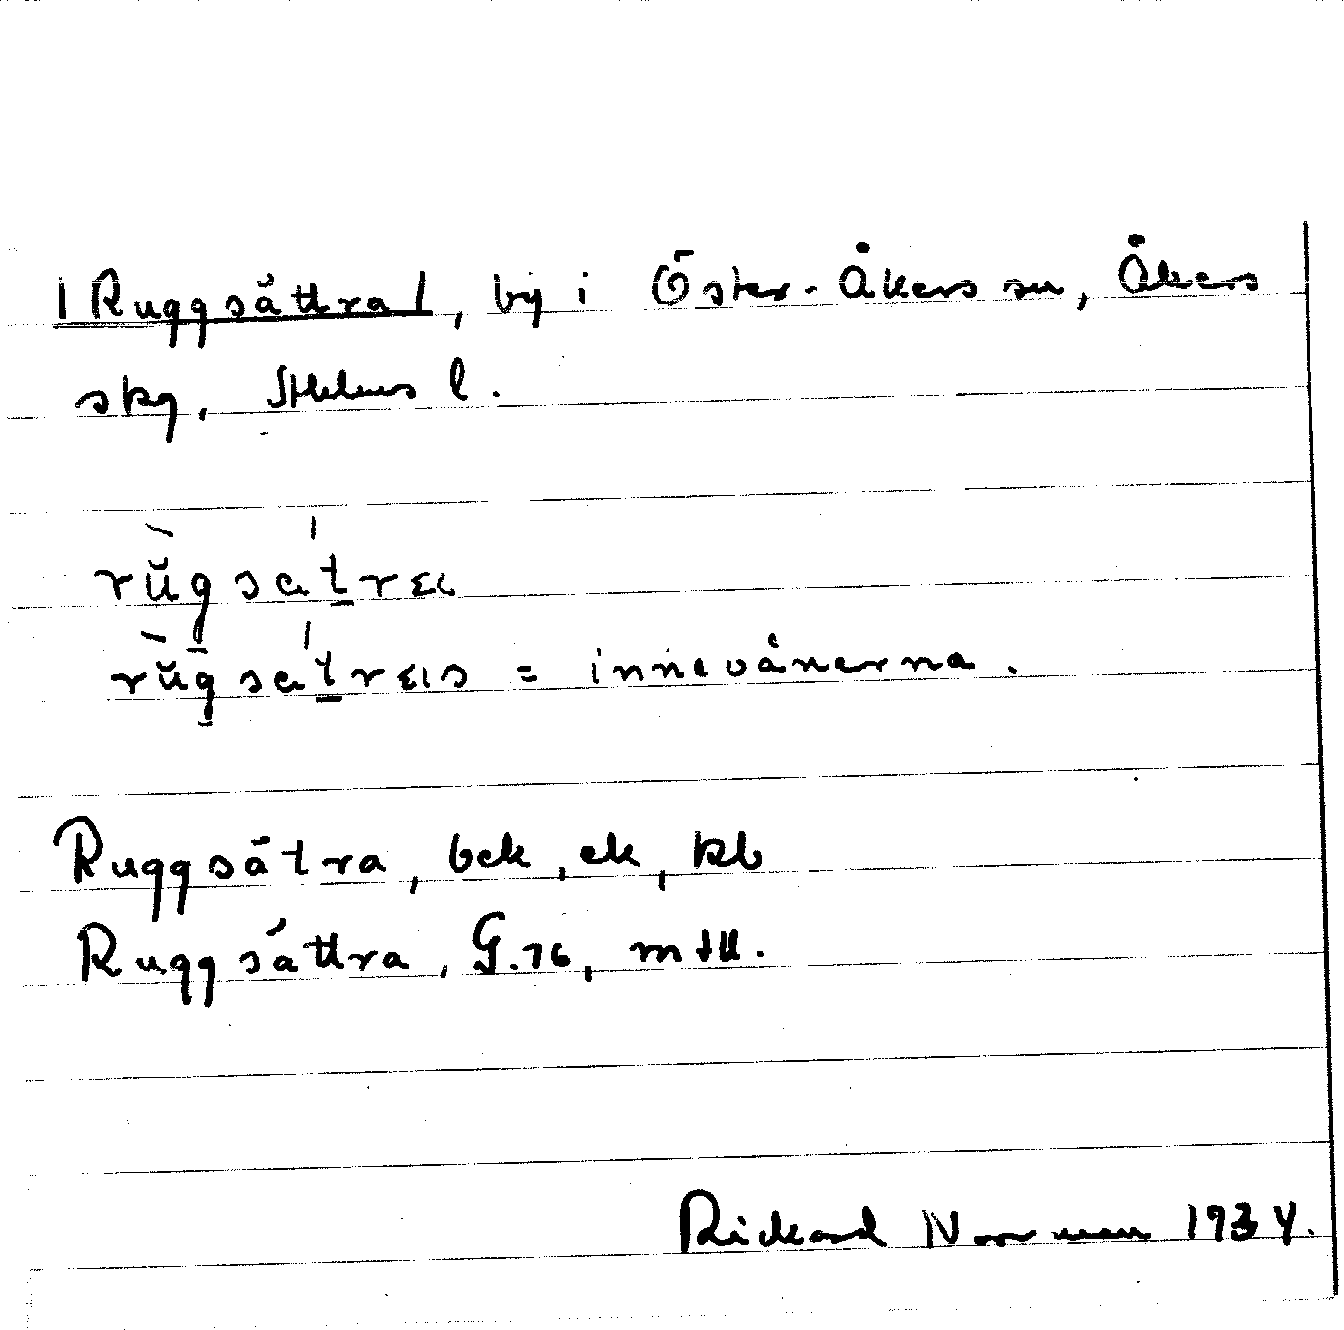 |Ruggsättra|, by i Öster-Åkers sn, Åkers
skg, Sthlms l.
rŭ̀gsat́ra
rŭ̀gsat́ras = innevånerna.
Ruggsätra, bek, ek, kb
Ruggsättra, G.76, mtll.
Rickard Norrman 1934.